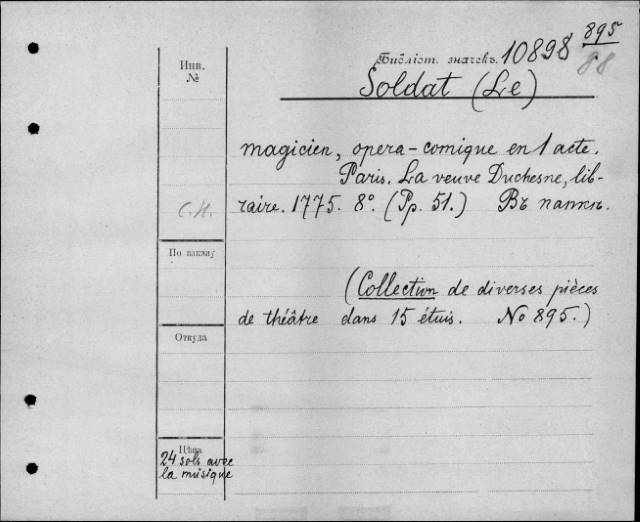 895
Библіот. значекъ. 10898 88
Инв.
№
Soldat (Le)
magicien, opera-comique en 1 acte.
Paris. La veuve Duchesne, lib-
raire. 1775. 8°. (Pp. 51.) Въ папкѣ.
С.Н.
По шкапу
(Collection de diverses pièces
de théâtre dans 15 étuis. No 895.)
Откуда
Цѣна
24 sols avec
la musique